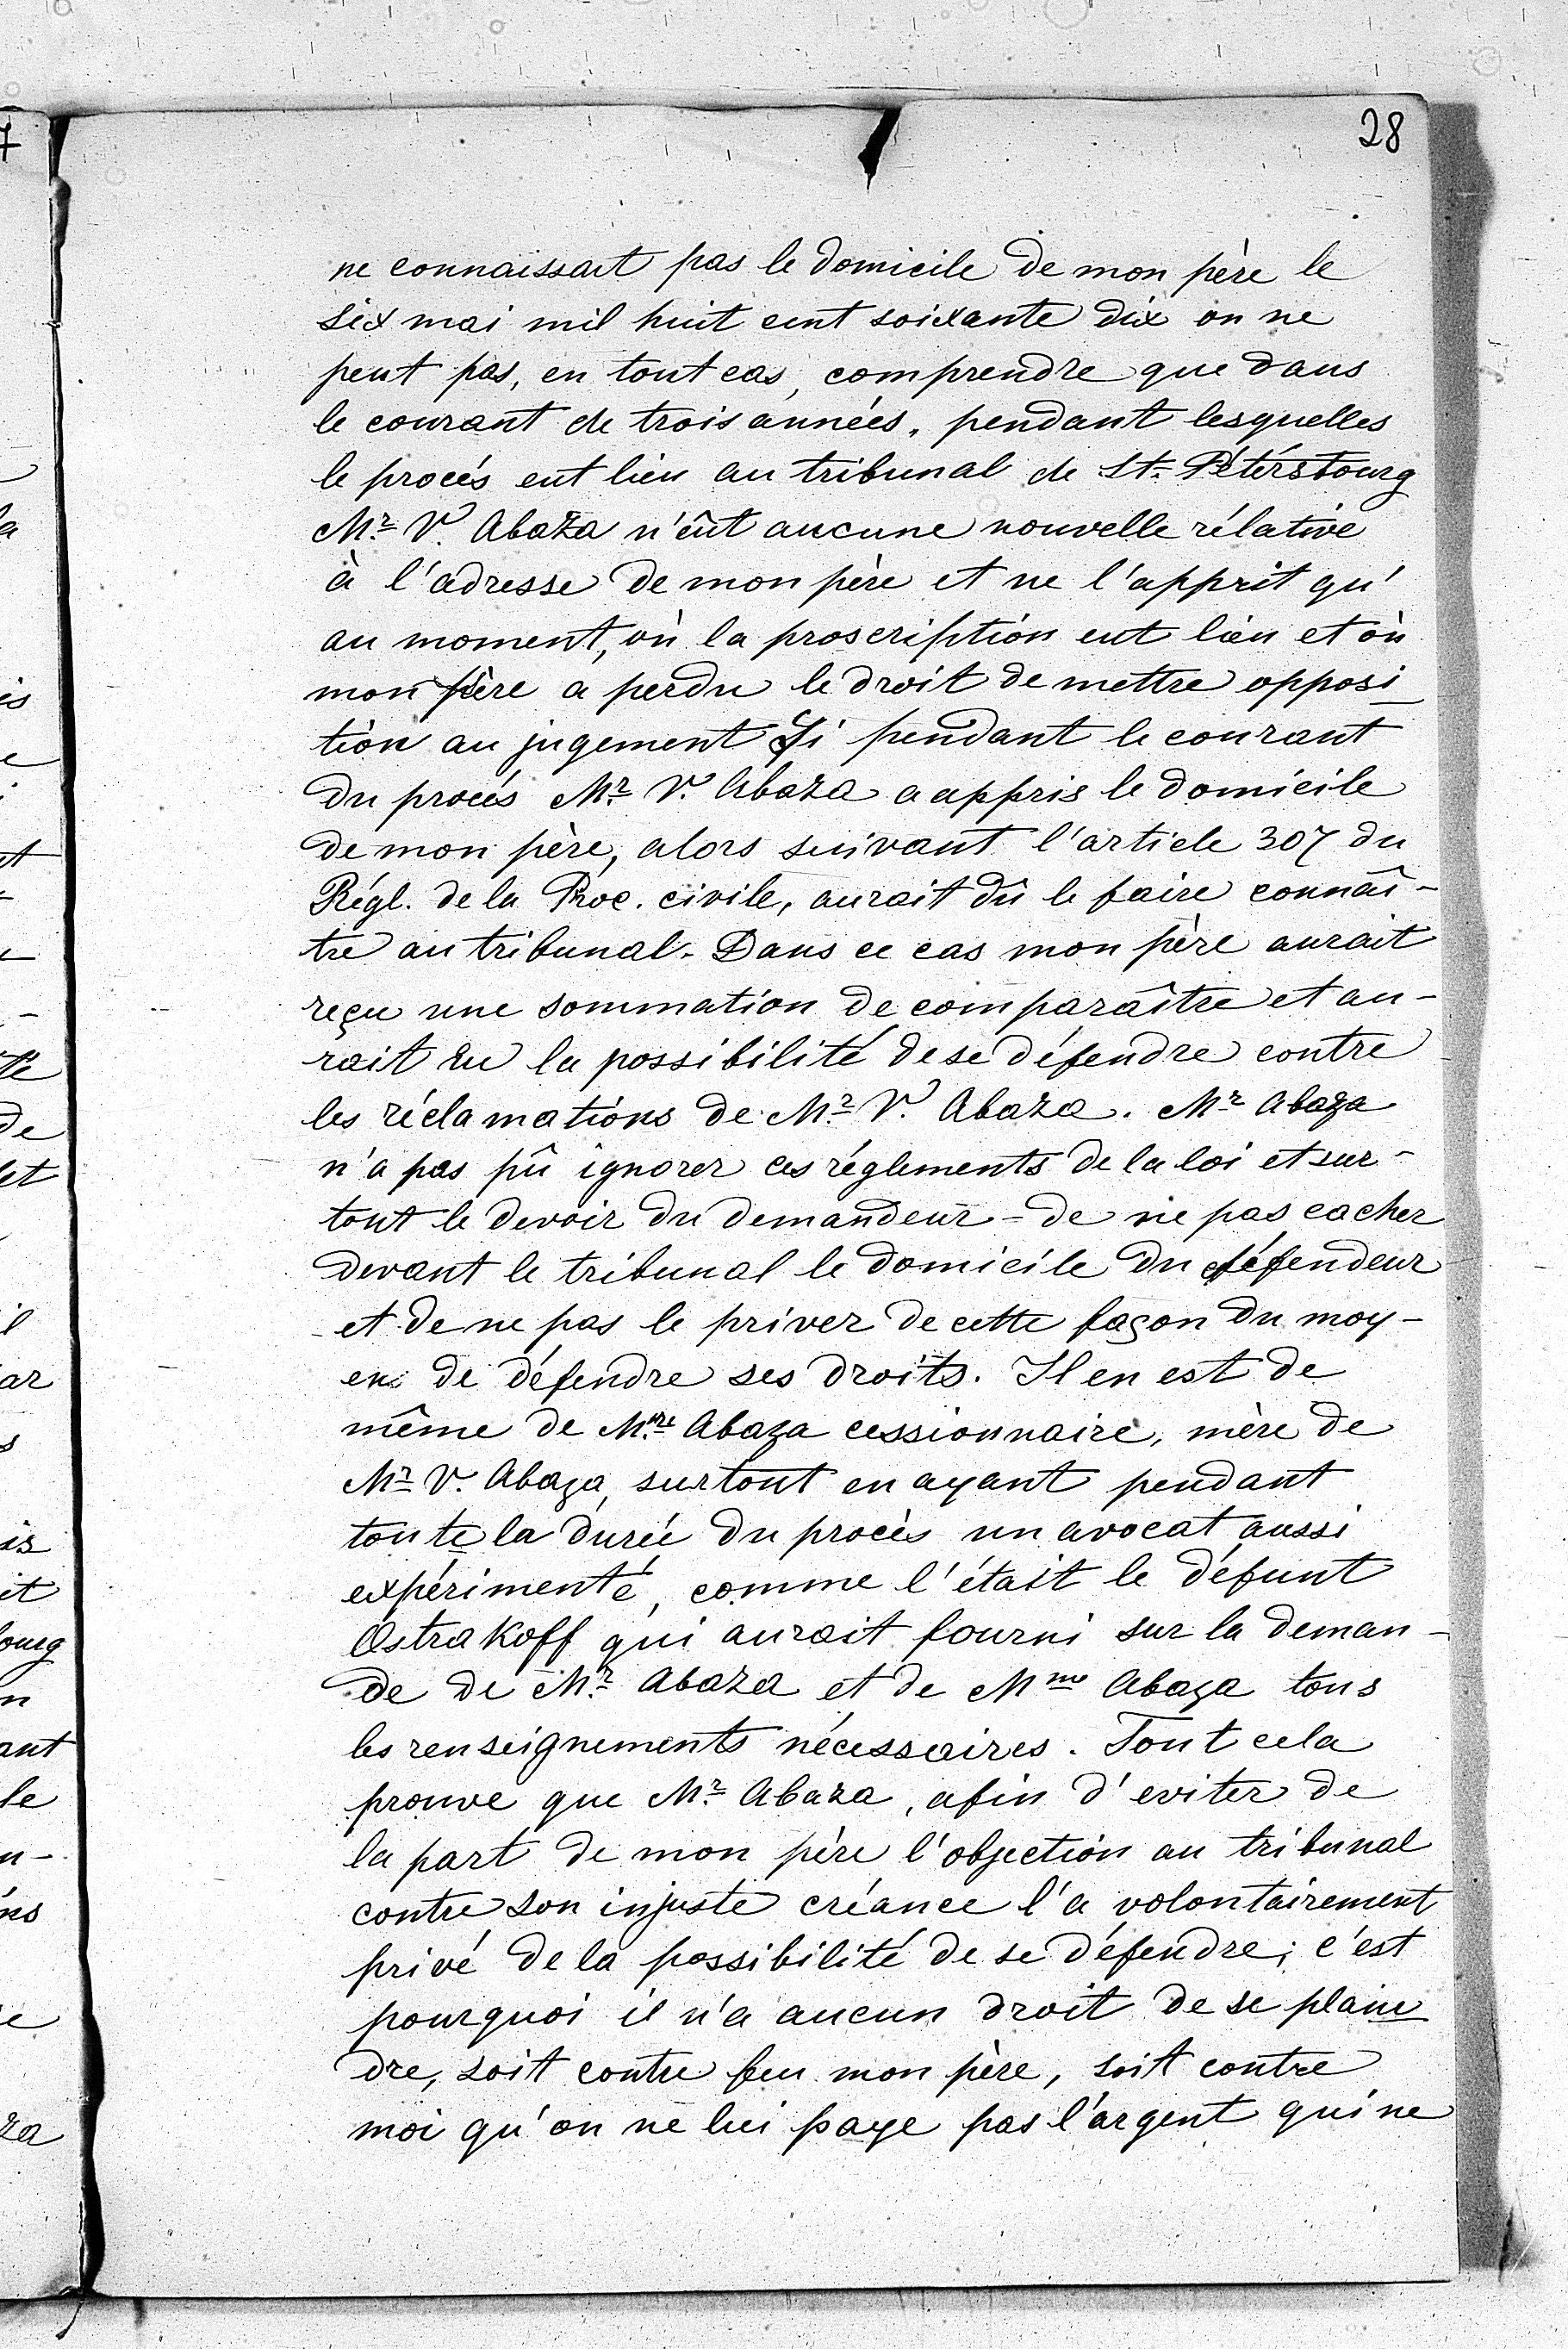 28
ne connaissait pas le domicile de mon père le
six mai mil huit cent soixante dix on ne
peut pas, en tout cas, comprendre que dans
le courant de trois années, pendant lesquelles
le procés eut lieu au tribunal de St. Pétérsbourg
Mr. V. Abaza n'eût aucune nouvelle rélative
à l'adresse de mon père et ne l'apprit qu'
au moment, où la proscription eut lieu et où
mon père a perdu le droit de mettre opposi-
tion au jugement Si pendant le courant
du procés Mr. V. Abaza a appris le domicile
de mon père, alors suivant l'article 307 du
Régl. de la Proc. civile, aurait dû le faire connaî-
tre au tribunal. Dans ce cas mon père aurait
reçu une sommation de comparaître et au-
rait eu la possibilité de se défendre contre
les réclamations de Mr. V. Abaza. Mr. Abaza
n'a pas pû ignorer ces réglements de la loi et sur-
tout le devoir du demandeur - de ne pas cacher
devant le tribunal le domicile du défendeur
et de ne pas le priver de cette façon du moy-
en de défendre ses droits. Il en est de
même de Mme Abaza cessionnaire, mère de
Mr. V. Abaza, surtout en ayant pendant
toute la durée du procès un avocat aussi
expérimenté, comme l'était le défunt
Ostrakoff qui aurait fourni sur la deman-
de de Mr. Abaza et de Mme Abaza tous
les renseignements nécessaires. Tout cela
prouve que Mr. Abaza, afin d'eviter de
la part de mon père l'objection au tribunal
contre son injuste créance l'a volontairement
privé de la possibilité de se défendre; c'est
pourquoi il n'a aucun droit de se plain-
dre, soit contre feu mon père, soit contre
moi qu'on ne lui paye pas l'argent qui ne